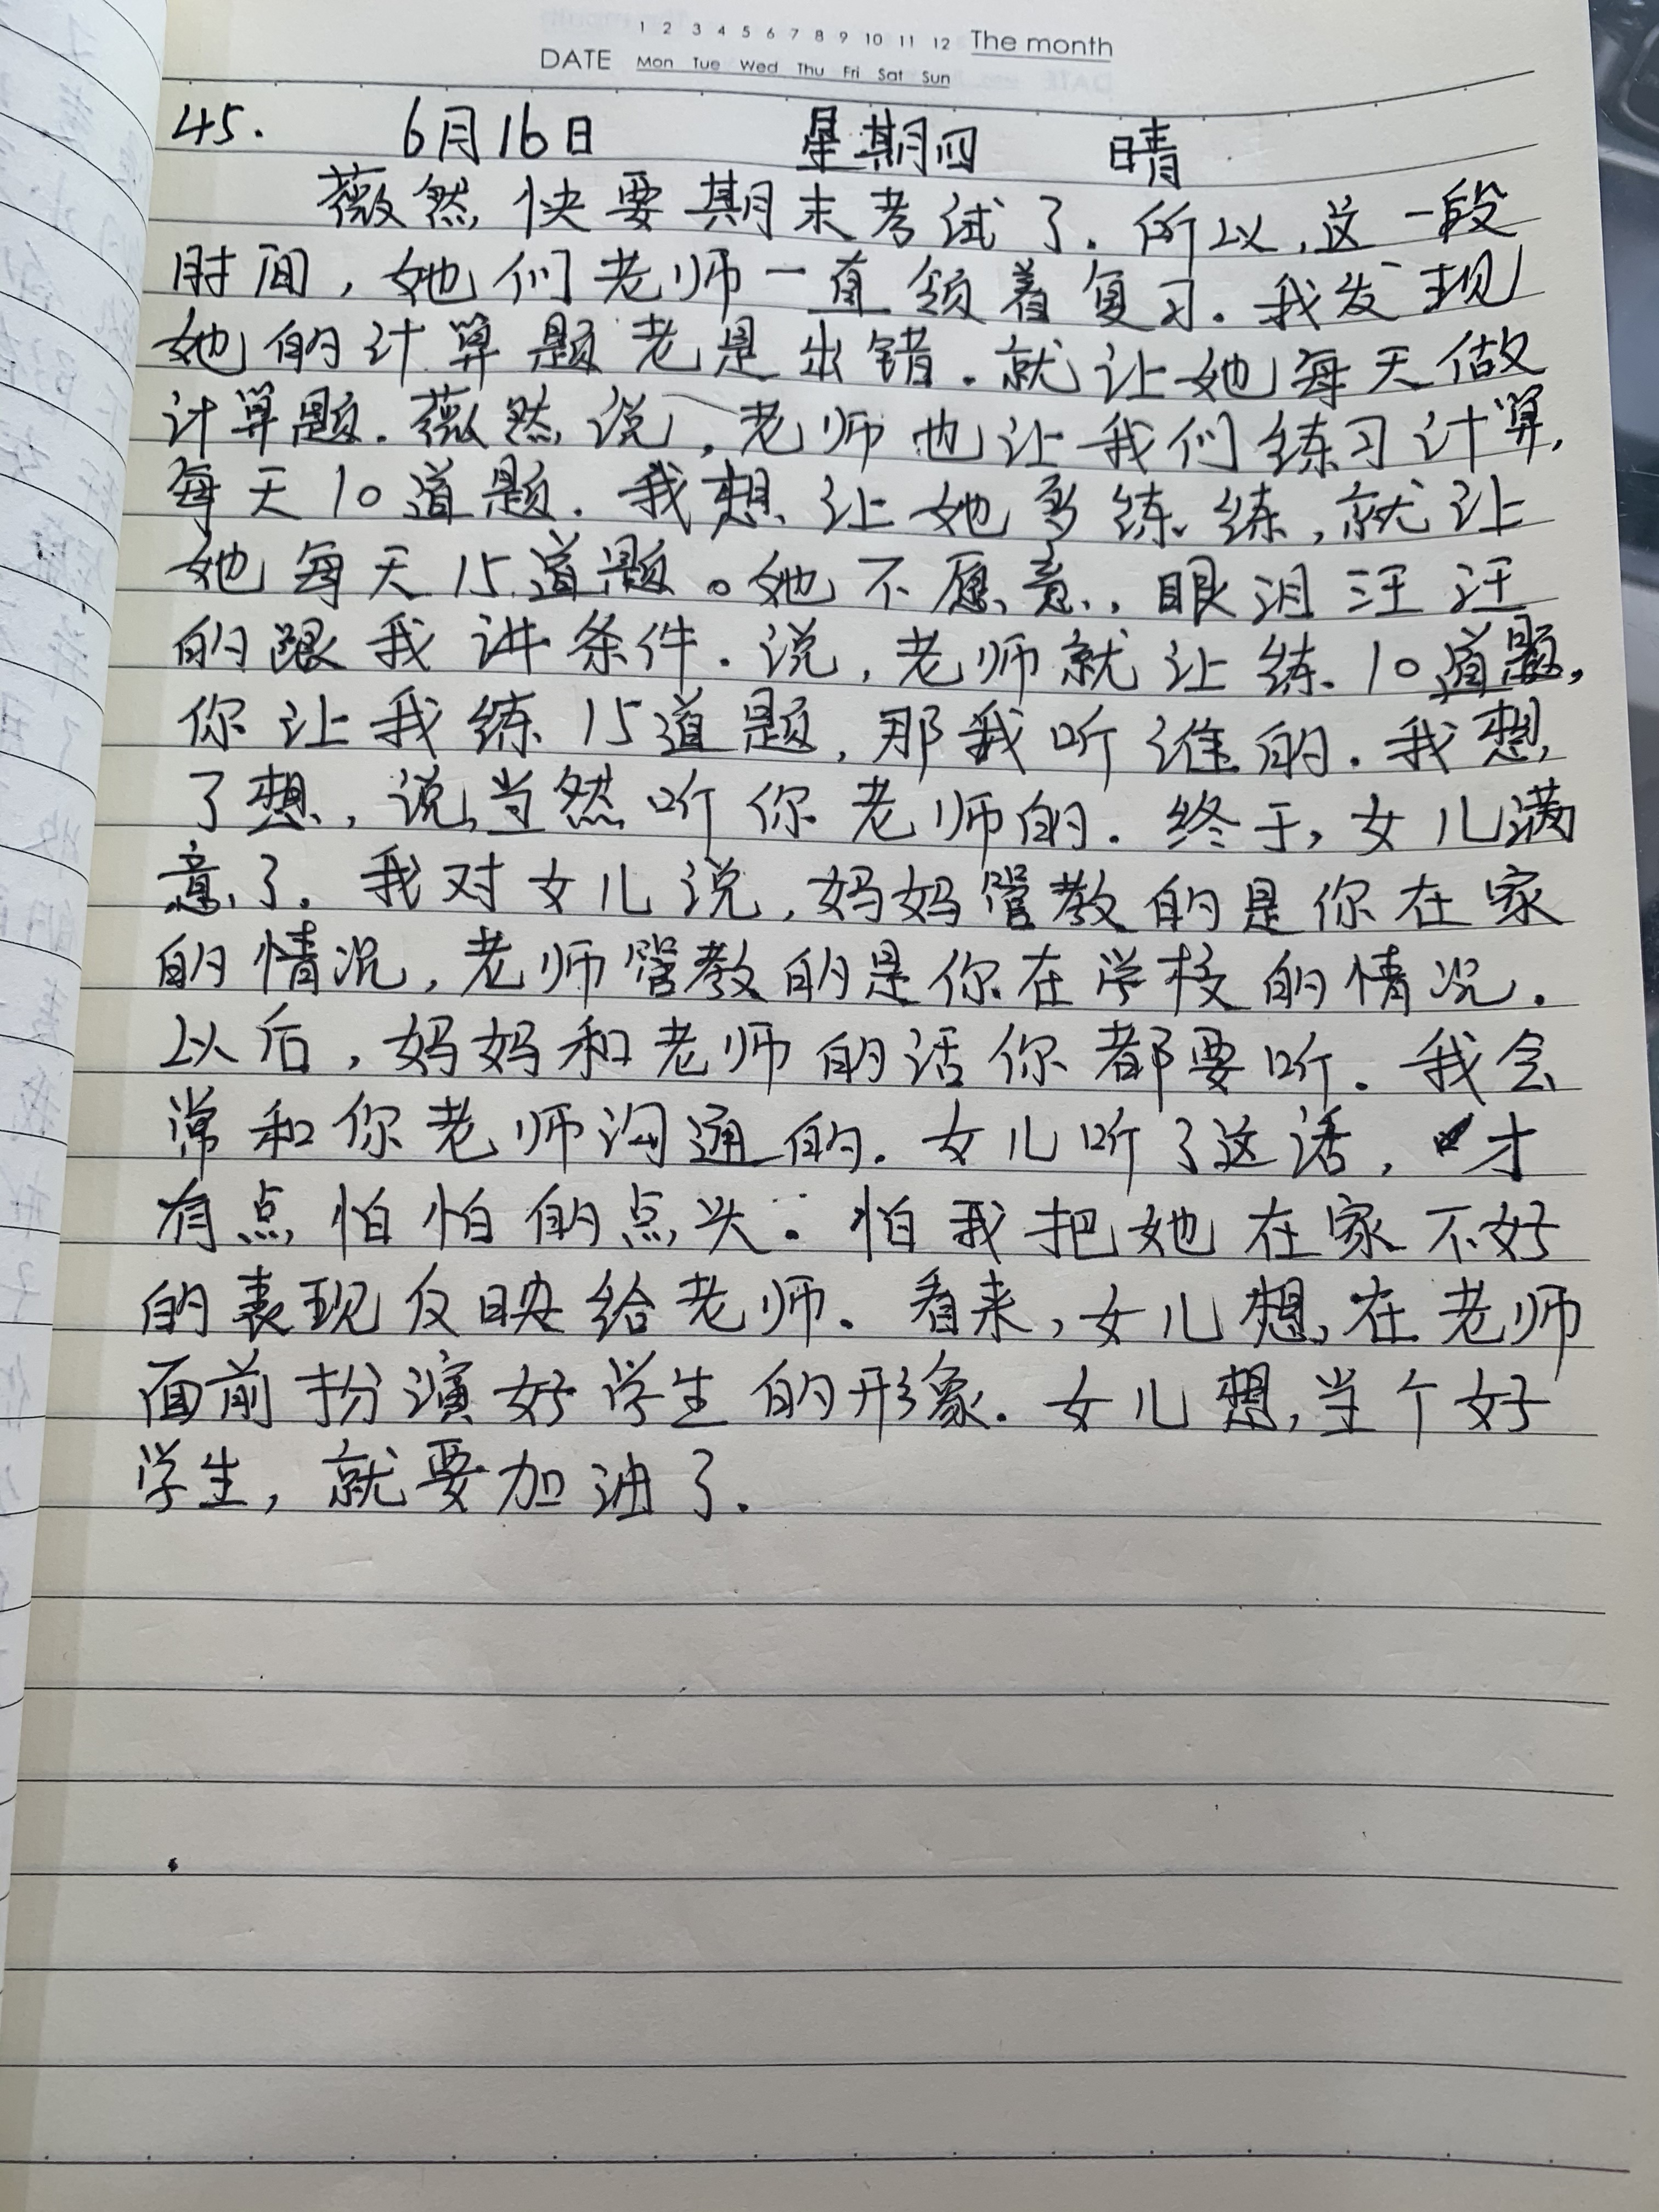 1 2 3 4 5 6 7 8 9 10 11 12 The month
DATE Mon Tue Wed Thu Fri Sat Sun
45. 6月16日 星期四 晴
薇然快要期末考试了.所以,这一段
时间,她们老师一直领着复习.我发现
她的计算题老是出错.就让她每天做
计算题.薇然说,老师也让我们练习计算,
每天10道题.我想让她多练练,就让
她每天15道题。她不愿意,眼泪汪汪
的跟我讲条件.说,老师就让练10道题,
你让我练15道题,那我听谁的.我想
了想,说,当然听你老师的.终于,女儿满
意了.我对女儿说,妈妈管教的是你在家
的情况,老师管教的是你在学校的情况.
以后,妈妈和老师的话你都要听.我会
常和你老师沟通的.女儿听了这话,才
有点怕怕的点头.怕我把她在家不好
的表现反映给老师.看来,女儿想在老师
面前扮演好学生的形象.女儿想当个好
学生,就要加油了.